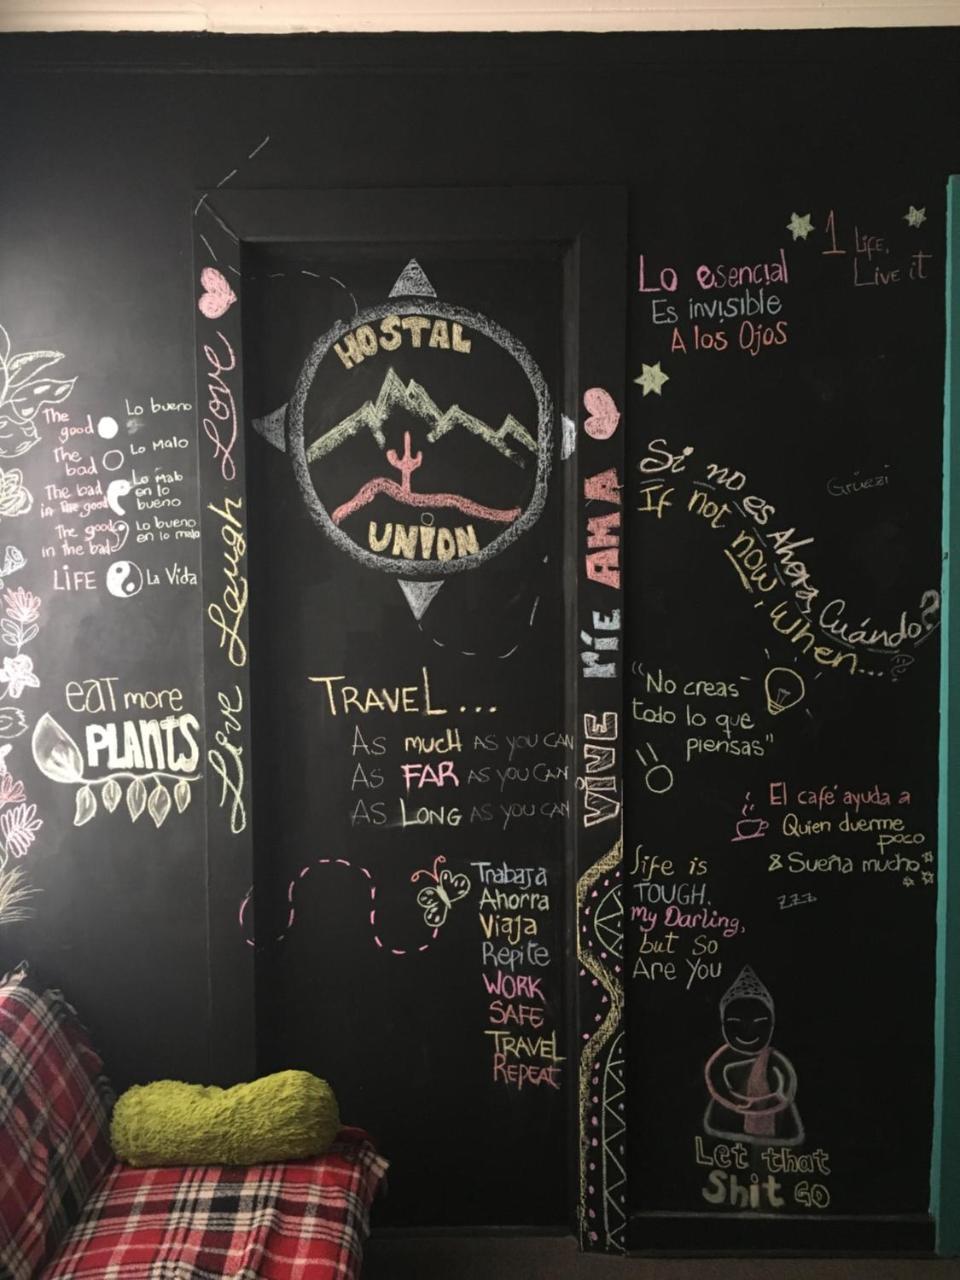 The good
Lo bueno
The bad
Lo Malo
The bad in the good
Lo Malo en lo bueno
The good in the bad
Lo bueno en lo malo
LIFE
La Vida
eaT more
PLANTS
Live Laugh Love
HOSTAL
UNION
TRAVEL...
As mucH AS YOU CAN
As FAR AS YOU CAN
AS LONG AS YOU CAN
Trabaja
Ahorra
Viaja
Repite
WORK
SAFE
TRAVEL
REPEAT
VIVE RÍE AMA
1 Life,
Live it
Lo esencial
Es invisible
A los Ojos
Si no es Ahora, Cuándo?
If not now, when...?
Grüezi
"No creas
todo lo que
piensas"
El café ayuda a
Quien duerme
poco
& Sueña mucho
zzz
life is
TOUGH.
My Darling,
but So
Are You
Let that
Shit GO